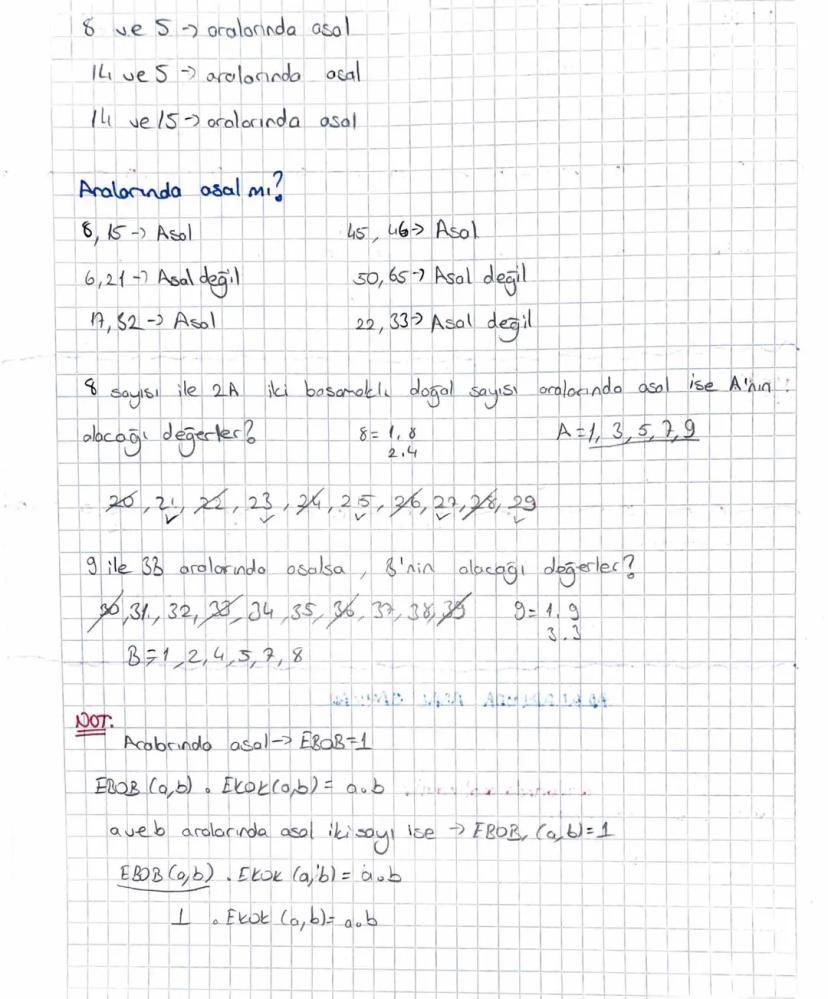 8 ve 5 -> aralarında asal
14 ve 5 -> aralarında asal
14 ve 15 -> aralarında asal
Aralarında asal mı?
8, 15 -> Asal 45, 46 -> Asal
6, 21 -> Asal değil 50, 65 -> Asal değil
17, 32 -> Asal 22, 33 -> Asal değil
8 sayısı ile 2A iki basamaklı doğal sayısı aralarında asal ise A'nın
alacağı değerler? 8 = 1.8 A = 1, 3, 5, 7, 9
2.4
20, 21, 22, 23, 24, 25, 26, 27, 28, 29
9 ile 3B aralarında asalsa, B'nin alacağı değerler?
30, 31, 32, 33, 34, 35, 36, 37, 38, 39 9 = 1.9
3.3
B = 1, 2, 4, 5, 7, 8
NOT:
Aralarında asal -> EBOB=1
EBOB (a,b) . EKOK (a,b) = a.b
a ve b aralarında asal iki sayı ise -> EBOB, (a,b)=1
EBOB (a,b) . EKOK (a,b) = a.b
1 . EKOK (a,b) = a.b